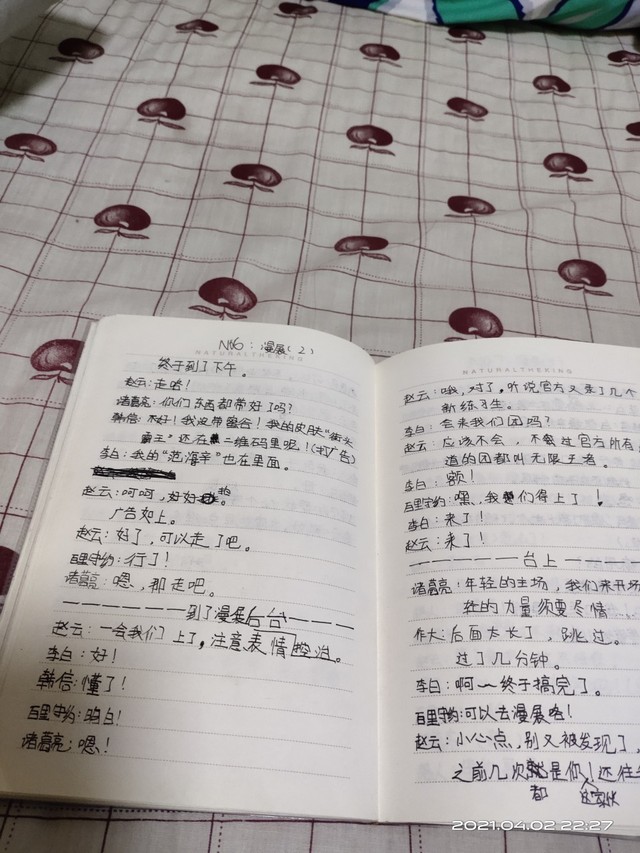 N46：漫展（2）
NATURALTHEKING
终于到了下午。
赵云：走啥！
诸葛亮：你们东西都带好了吗？
韩信：不好！我没带墨谷！我的皮肤"街头
霸王"还在二维码里呢！（打广告）
李白：我的"范海辛"也在里面。
赵云：呵呵，好好的。
广告如上。
赵云：好了，可以走了吧。
百里守约：行了！
诸葛亮：嗯、那走吧。
——————到了漫展后台————
赵云：一会我们上了，注意表情控溢。
李白：好！
韩信：懂了！
百里守约：明白！
诸葛亮：嗯！
NATURALTHEKING
赵云：哦，对了，听说官方又来了几个
新练习生。
李白：会来我们团吗？
赵云：应该不会，不够过官方所有
道的团都叫无限王者。
李白：额！
百里守约：嘿、我们得上了！
李白：来了！
赵云：来了！
——————台上————
诸葛亮：年轻的主场，我们来开场
狂的力量须要尽情……
作大：后面太长了，跳过。
过了几分钟。
李白：啊～终于搞完了。
百里守约：可以去漫展啥！
赵云：小心点，别又被发现了，
之前几次都是你！还往
2021.04.02 22:27